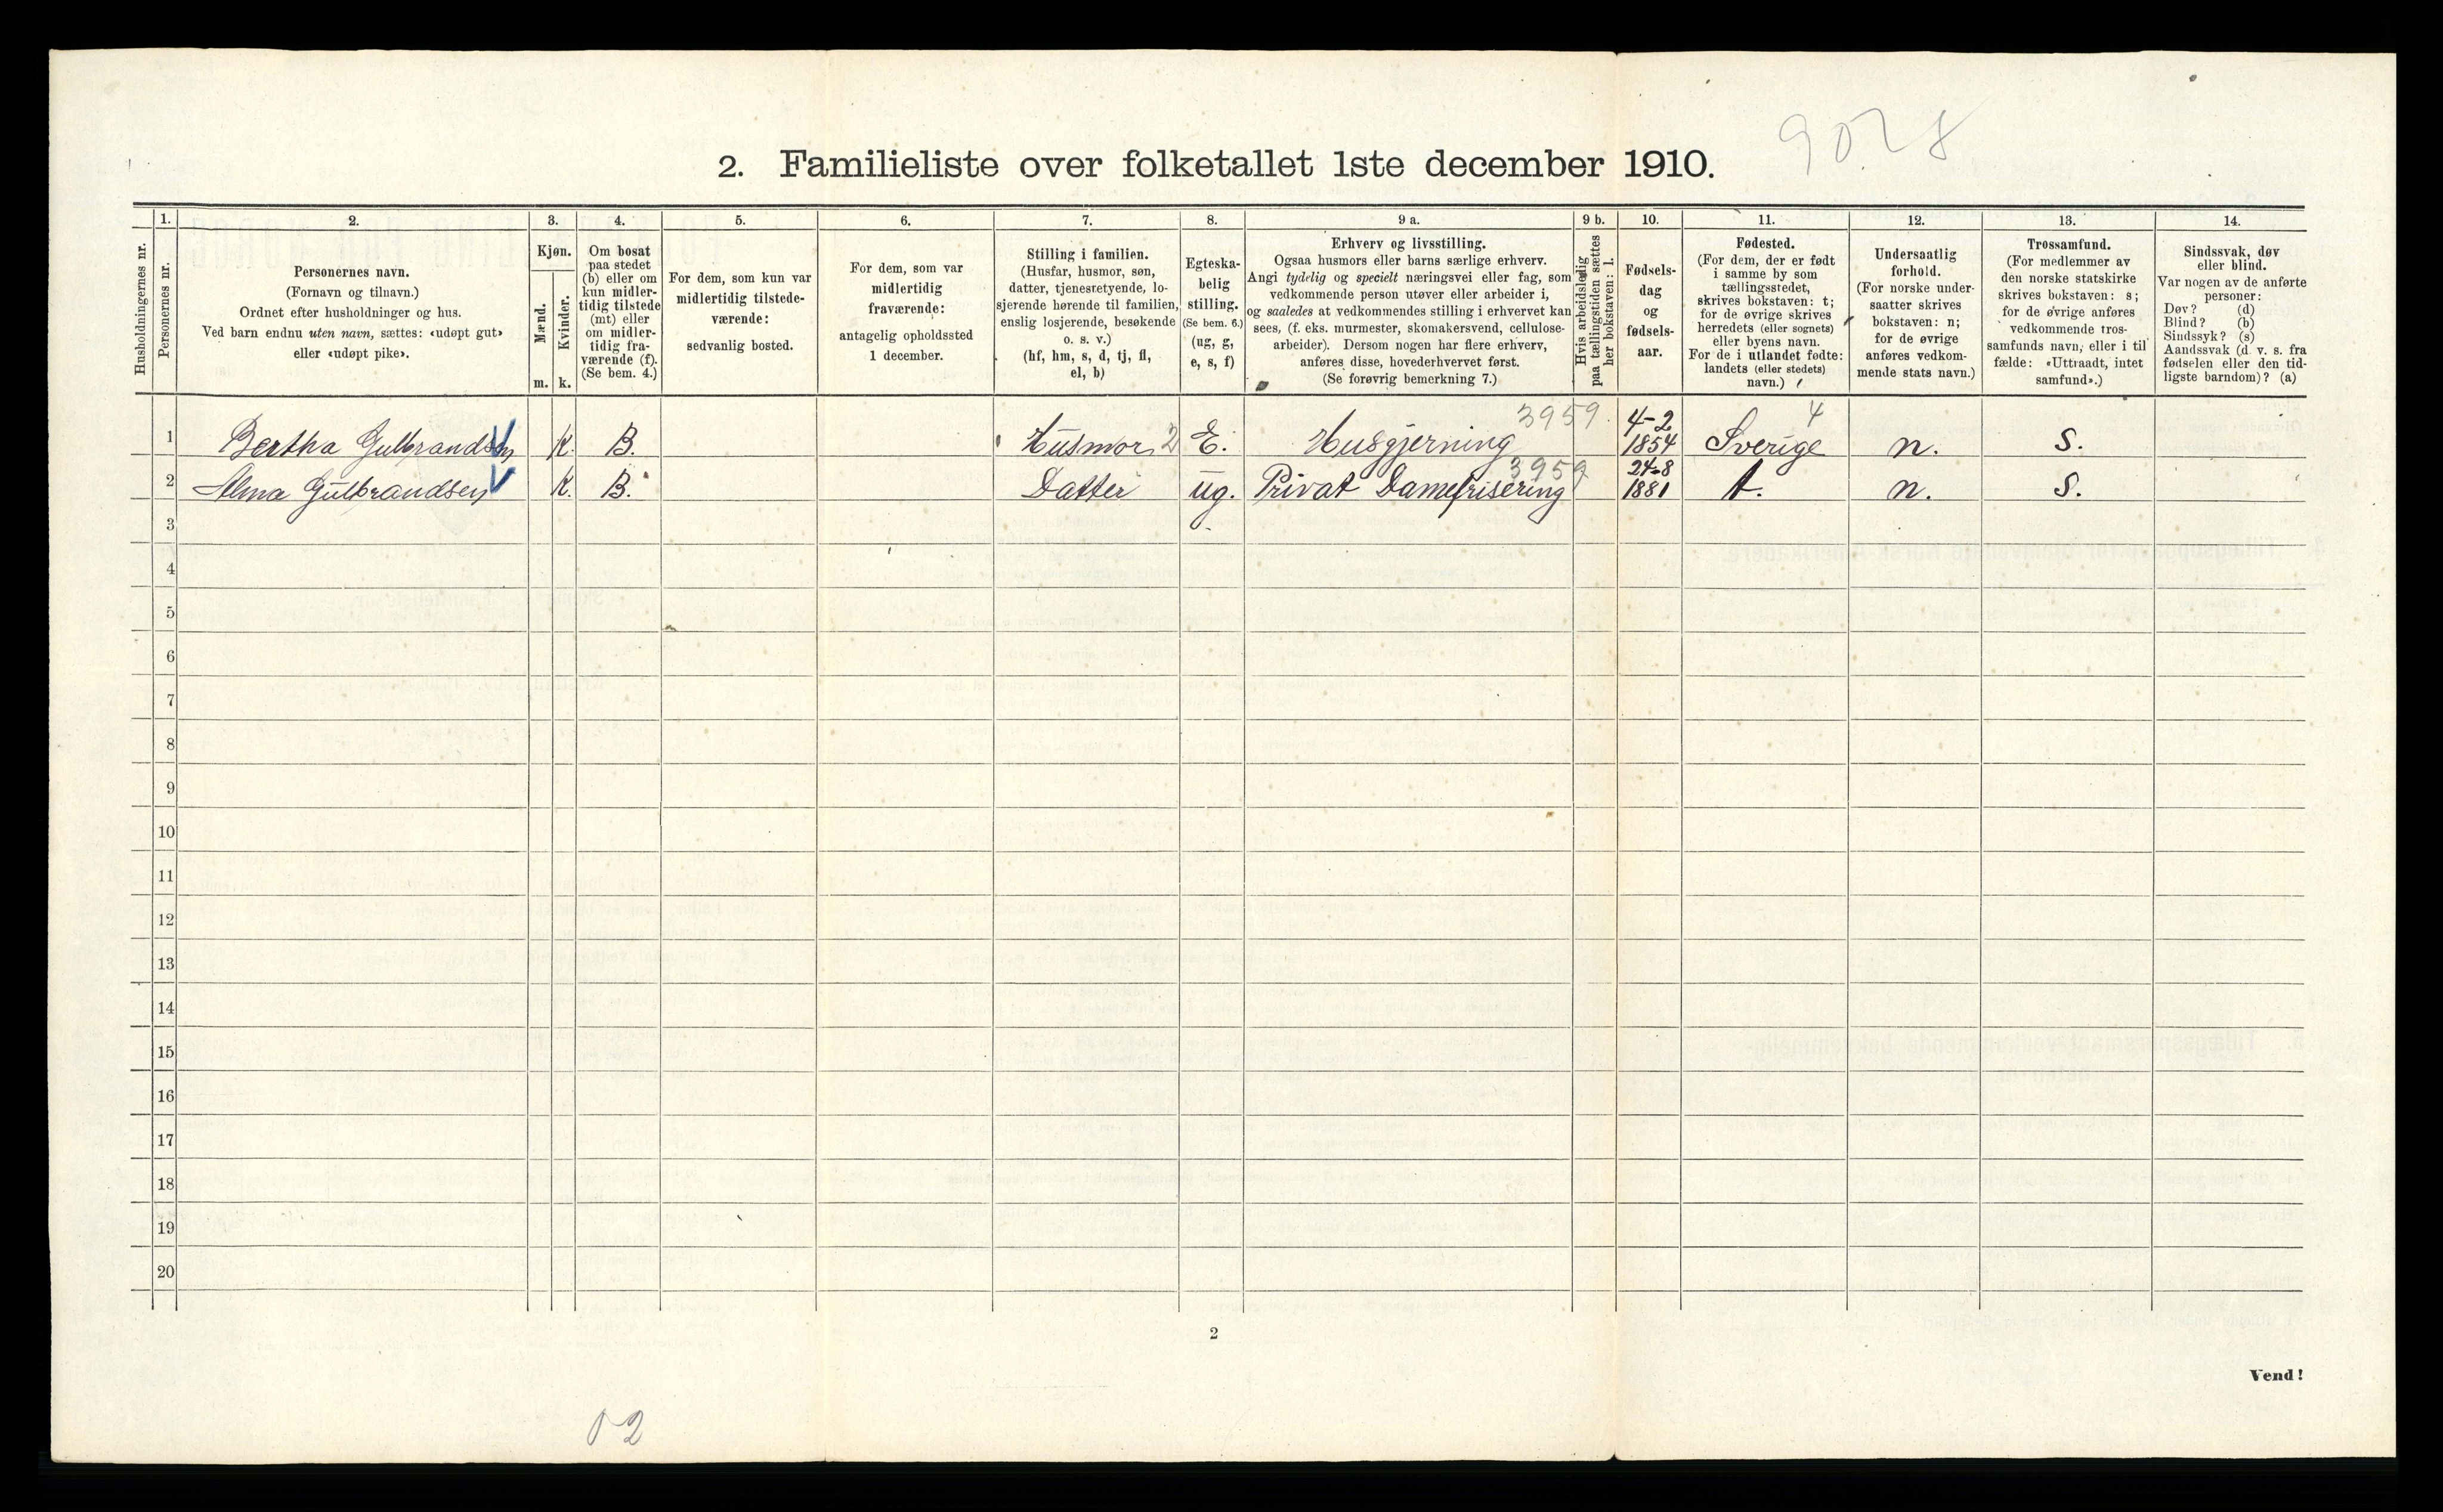 9028
2. Familieliste over folketallet 1ste december 1910.
Husholdningernes nr.
1.
Personernes nr.
2.
Personernes navn.
(Fornavn og tilnavn.)
Ordnet efter husholdninger og hus.
Ved barn endnu uten navn, sættes: «udøpt gut»
eller «udøpt pike».
3.
Kjøn.
Mænd.
m.
Kvinder.
k.
4.
Om bosat
paa stedet
(b) eller om
kun midler-
tidig tilstede
(mt) eller
om midler-
tidig fra-
værende (f).
(Se bem. 4.)
5.
For dem, som kun var
midlertidig tilstede-
værende:
sedvanlig bosted.
6.
For dem, som var
midlertidig
fraværende:
antagelig opholdssted
1 december.
7.
Stilling i familien.
(Husfar, husmor, søn,
datter, tjenestetyende, lo-
sjerende hørende til familien,
enslig losjerende, besøkende
o. s. v.)
(hf, hm, s, d, tj, fl,
el, b)
8.
Egteska-
belig
stilling.
(Se bem. 6.)
(ug, g,
e, s, f)
9 a.
Erhverv og livsstilling.
Ogsaa husmors eller barns særlige erhverv.
Angi tydelig og specielt næringsvei eller fag, som
vedkommende person utøver eller arbeider i,
og saaledes at vedkommendes stilling i erhvervet kan
sees, (f. eks. murmester, skomakersvend, cellulose-
arbeider). Dersom nogen har flere erhverv,
anføres disse, hovederhvervet først.
(Se forøvrig bemerkning 7.)
9 b.
Hvis arbeidsledig
paa tællingstiden sættes
her bokstaven: l.
10.
Fødsels-
dag
og
fødsels-
aar.
11.
Fødested.
(For dem, der er født
i samme by som
tællingsstedet,
skrives bokstaven: t;
for de øvrige skrives
herredets (eller sognets)
eller byens navn.
For de i utlandet fødte:
landets (eller stedets)
navn.)
12.
Undersaatlig
forhold.
(For norske under-
saatter skrives
bokstaven: n;
for de øvrige
anføres vedkom-
mende stats navn.)
13.
Trossamfund.
(For medlemmer av
den norske statskirke
skrives bokstaven: s;
for de øvrige anføres
vedkommende tros-
samfunds navn, eller i til
fælde: «Uttraadt, intet
samfund».)
14.
Sindssvak, døv
eller blind.
Var nogen av de anførte
personer:
Døv? (d)
Blind? (b)
Sindssyk? (s)
Aandssvak (d. v. s. fra
fødselen eller den tid-
ligste barndom)? (a)
1 Bertha Gulbrandsen K. B. Husmor 2 E. Husgjerning 3959. 4-2 1854 Sverige 4 n. s.
2 Alma Gulbrandsen K. B. Datter ug. Privat Damefrisering 3959 24-8 1881 t. n. s.
3
4
5
6
7
8
9
10
11
12
13
14
15
16
17
18
19
20
2
Vend!
02